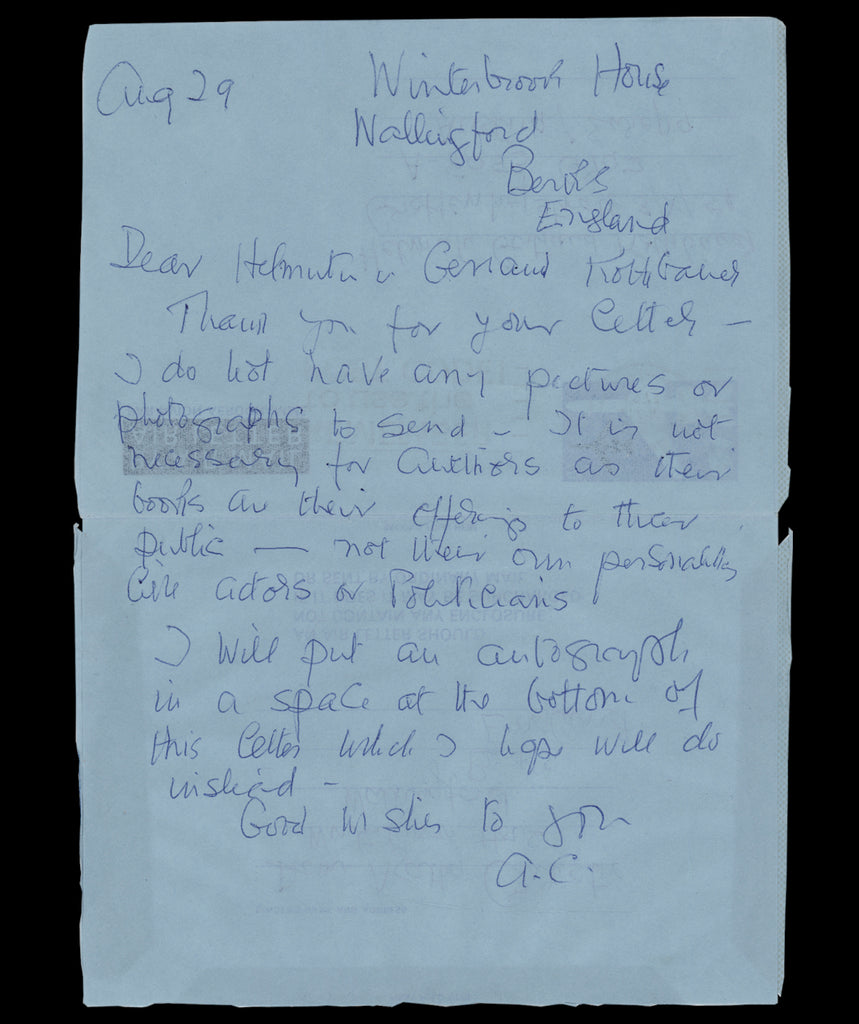 Aug 29
Winterbrook House
Wallingford
Berks
England
Dear Helmuth u Gerhard
Thank you for your letter –
I do not have any pictures or
photographs to send – It is not
necessary for authors as their
books are their offerings to their
public — not their own personality
like actors or Politicians
I will put an autograph
in a space at the bottom of
this letter which I hope will do
instead –
Good wishes to you
A.C.
AN AIR LETTER SHOULD
NOT CONTAIN ANY ENCLOSURE
OR SENT BY ORDINARY MAIL